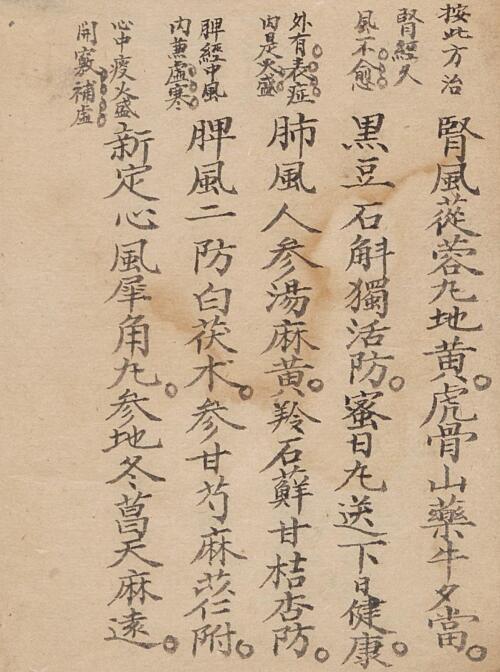 按此方治
腎經久
風不愈
腎風蓯蓉丸地黃。虎骨山藥牛夕當。
黒豆石斛獨活防。蜜日丸送下日健康。
外有表症
内是火盛
肺風人参湯麻黃。羚石蘚甘桔杏防。
脾經中風
内兼虛寒
脾風二防白茯朮。参甘芍麻苡仁附。
心中痰火盛
開竅補虛
新定心風犀角丸。参地冬菖天麻遠。